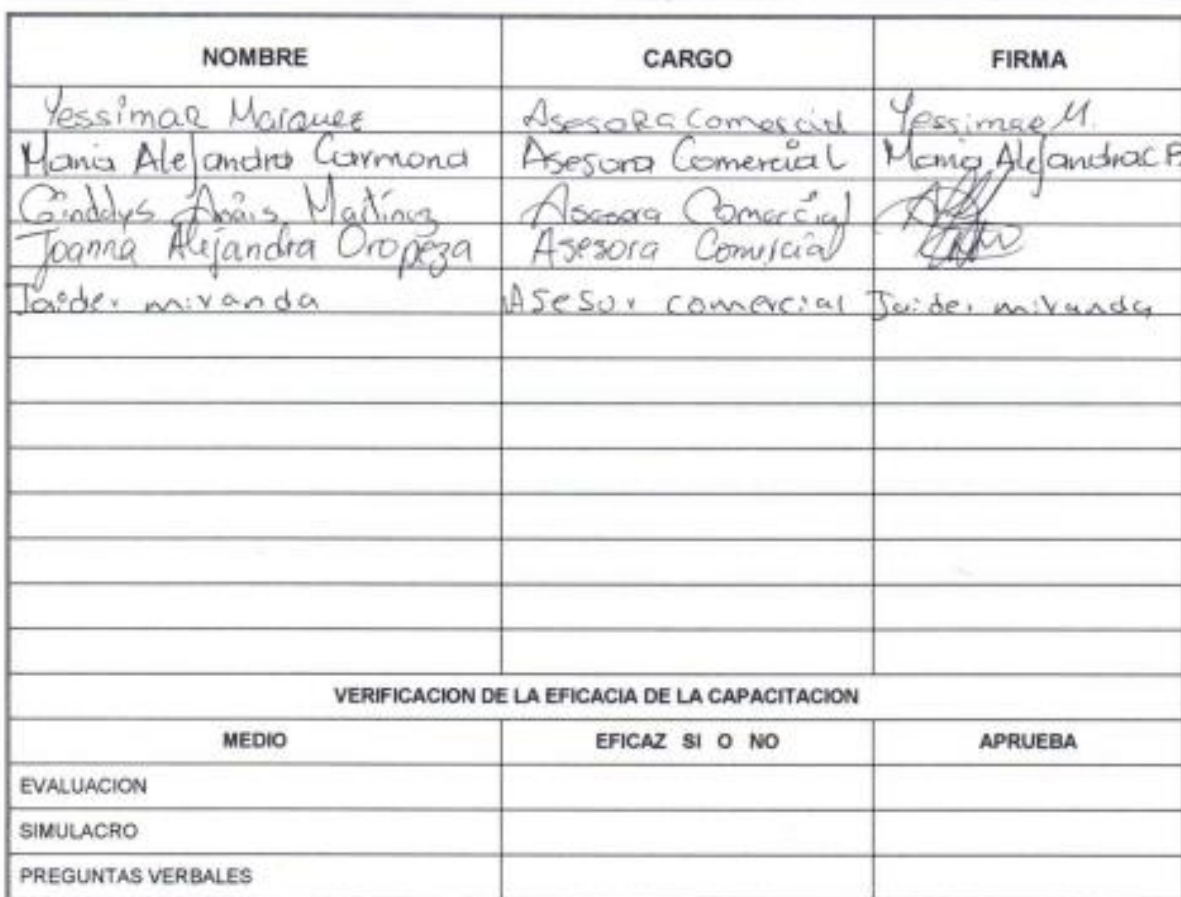 NOMBRE CARGO FIRMA
Yessimar Marquez Asesora Comercial Yessimar M.
Maria Alejandra Carmona Asesora Comercial Maria Alejandra C P.
Ginddys Anäis Martínez Asesora Comercial
Joanna Alejandra Oropeza Asesora Comercial
Jaider miranda Asesor comercial Jaider miranda
VERIFICACION DE LA EFICACIA DE LA CAPACITACION
MEDIO EFICAZ SI O NO APRUEBA
EVALUACION
SIMULACRO
PREGUNTAS VERBALES